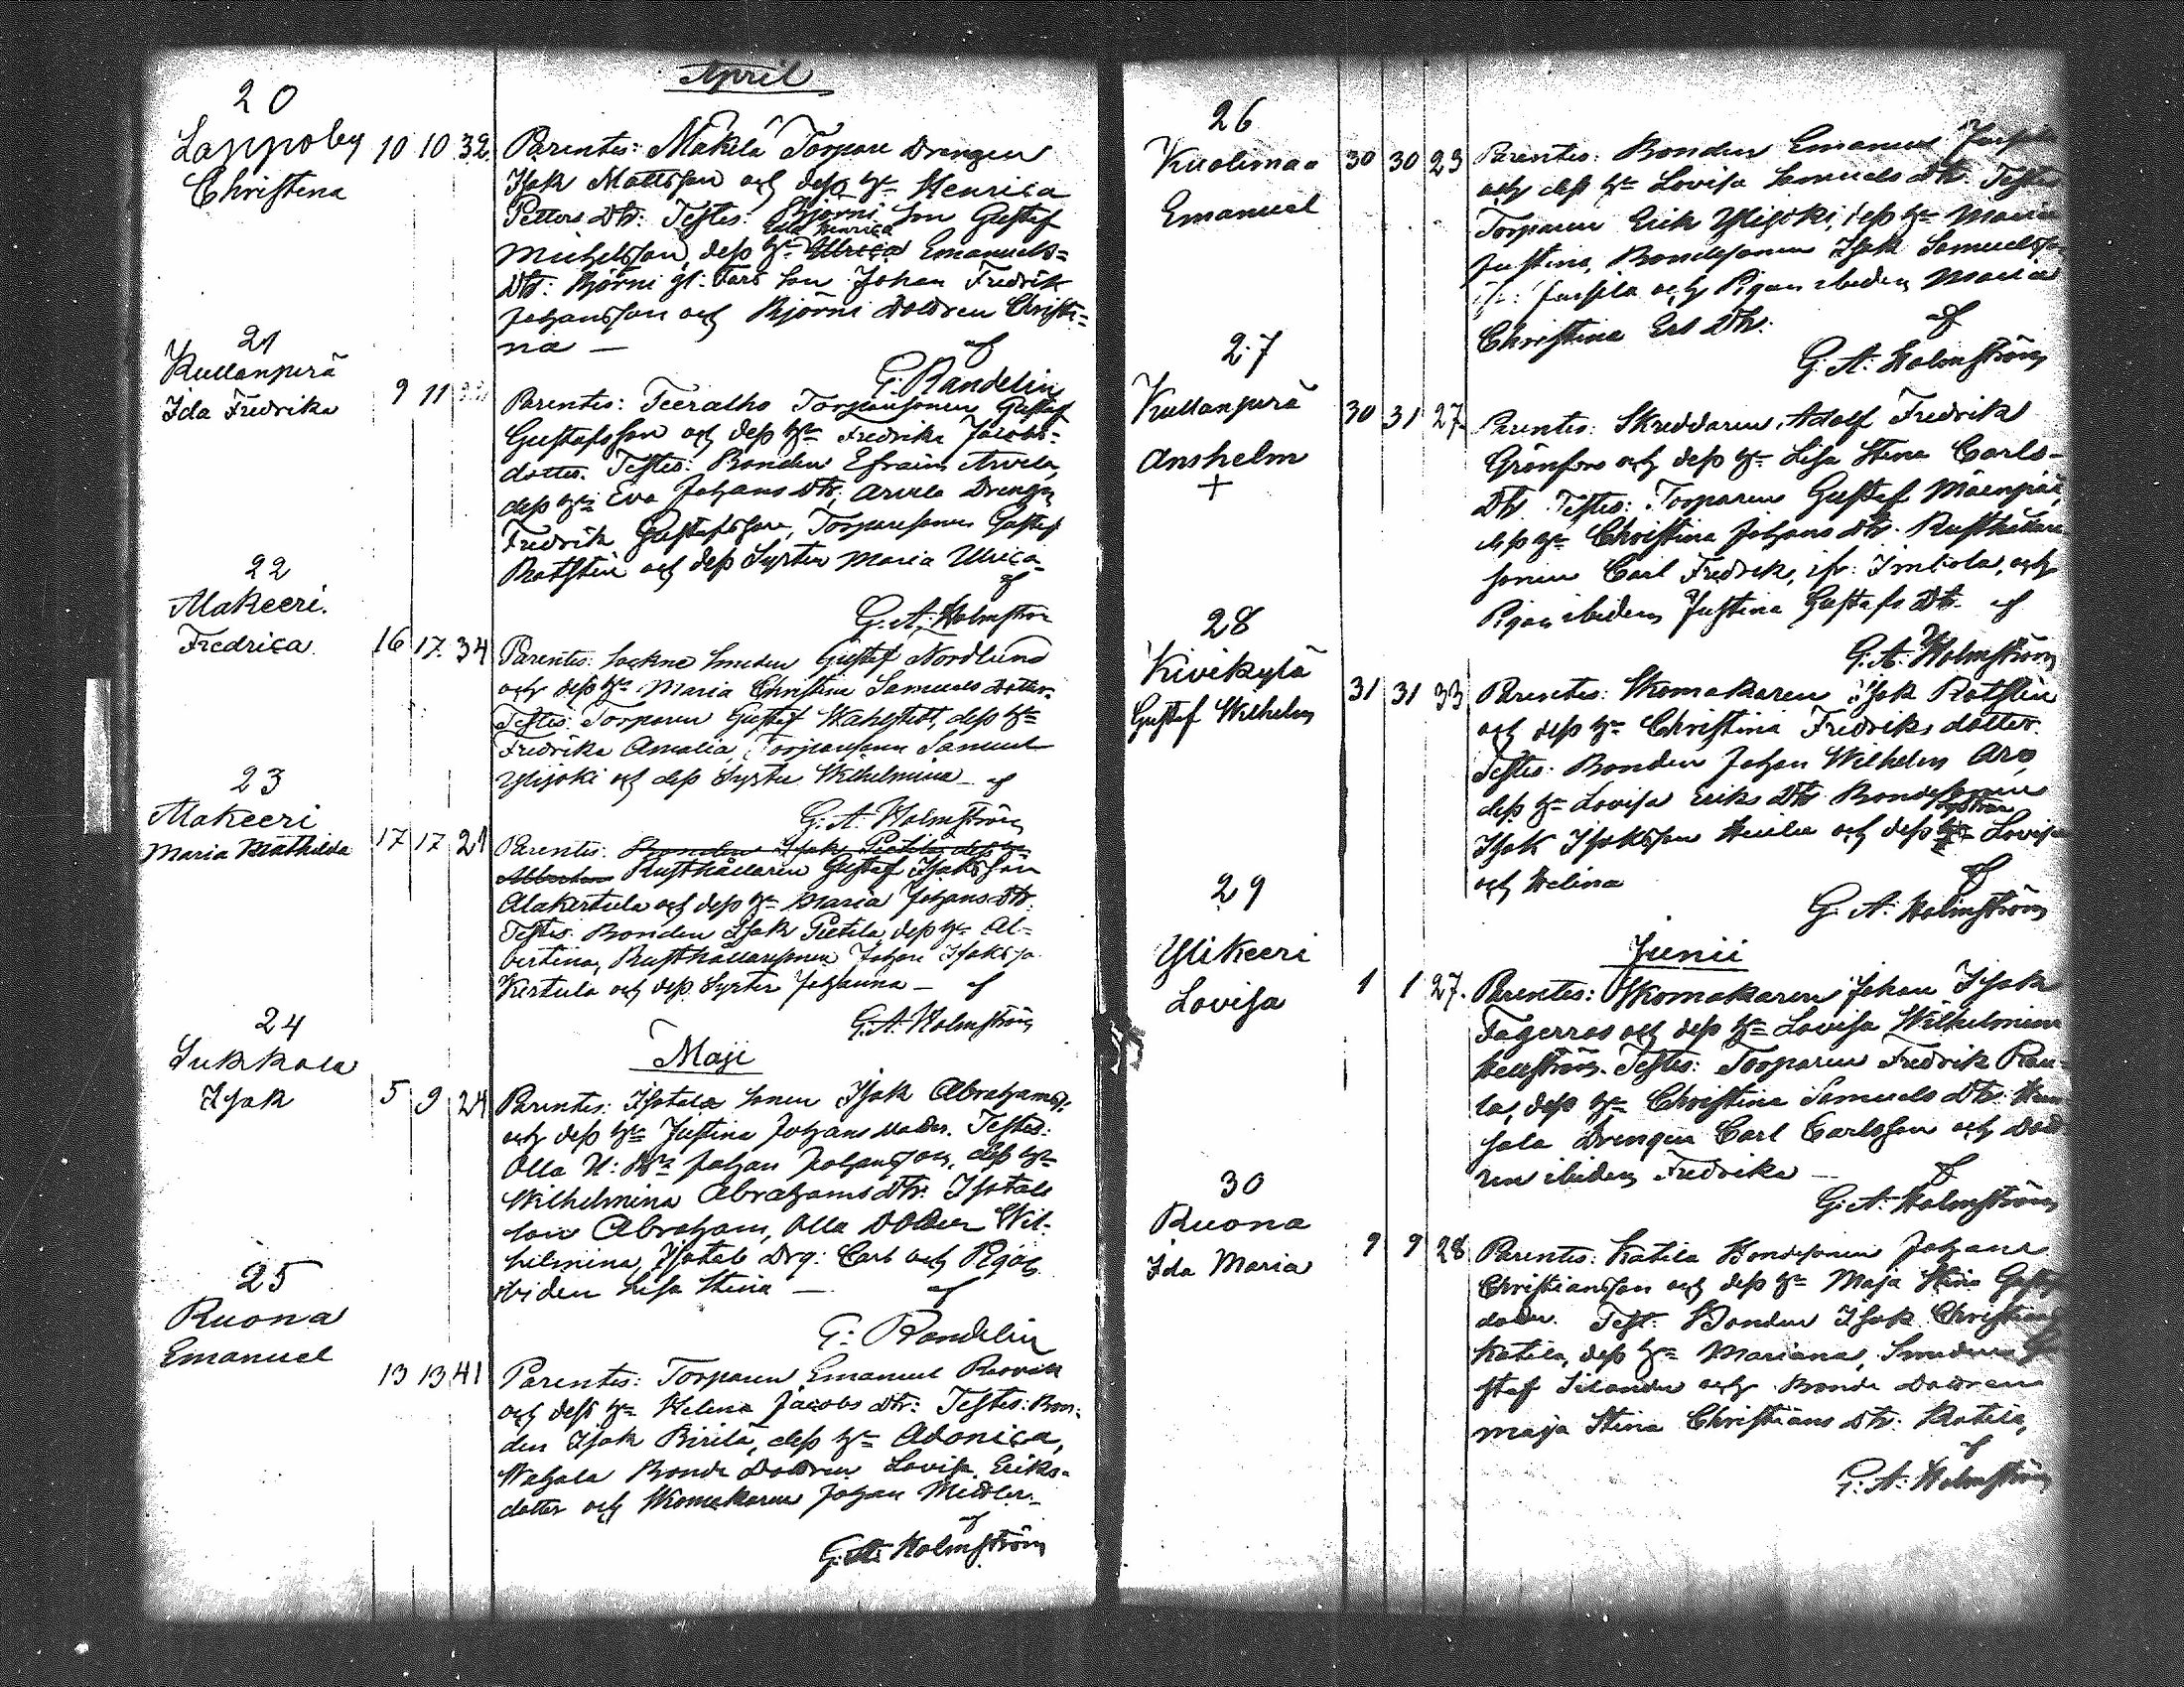 April
20
Lappoby 10 10 32. Parentes: Mäkilä Torpare Drengen
Christina
Isak Mattsson och dess Hu Henrica
Petters Dtr: Testes: Björni Son Gustaf
Eda Henrica
Michelsson, dess Hu Ulrica Emanuels=
Dtr: Björni gl: Fars Son Johan Fredrik
Johansson och Björni Dottren Christi=
na — af
G. Randelin
21
Kullanperä
Ida Fredrika 9 11 Parentes: Teeratho Torparesonen Gustaf
Gustafsson och dess Hu Fredrika Jacobs=
dotter. Testes: Bonden Efraim Arvela,
dess Hu Eva Johans Dtr. Arvela Drengen
Fredrik Gustafsson, Torparesonen Gustaf
Rotsten och dess Syster Maria Ulrica
af
G. A. Holmström
22
Makeeri.
Fredrica. 16 17. 34 Parentes: Sockne Smeden Gustaf Nordlund
och dess Hu Maria Christina Samuels dotter.
Testes: Torparen Gustaf Wahlstedt, dess Hu
Fredrika Amalia, Torparesonen Samuel
Ylisjoki och dess Syster Wilhelmina — af
G. A. Holmström
23
Makeeri
Maria Mathilda 17 17 21 Parentes: Bonden Isak Pietilä dess Hu
Albertina Rusthållaren Gustaf Isaksson
Alakertula och dess Hu Maria Johans Dtr.
Testes. Bonden Isak Pietilä, dess Hu Al=
bertina, Rusthållaresonen Johan Isaksson
Kertula och dess Syster Johanna — af
G. A. Holmström
Maji
24
Sukkola
Isak 5 9 24 Parentes: Isotalo Sonen Isak Abrahamss:
och dess Hu Justina Johans dotter. Testes:
Olla Johan Johansson, dess Hu
Wilhelmina Abrahams dtr. Isotalo
Son Abraham, Olla Dotter Wil-
helmina, Isotalo Drg: Carl och Pigan
ibidem Lisa Stina — af
G: Randelin
25
Ruona
Emanuel 13 13 41 Parentes: Torparen Emanuel
och dess Hu Helena Jacobs dtr: Testes: Bon-
den Isak Pirilä, dess Hu Adonica,
Wahala Bonde Dottren Lovisa Eriks-
dotter och Skomakaren Johan Medler.
af
G. A. Holmström
26
Kuolimaa 30 30 23 Parentes: Bonden Emanuel Jussila
Emanuel
och dess Hu Lovisa Samuels Dtr. Testes
Torparen Erik Ylisjoki, dess Hu Maria
Justina, Bondesonen Isak Samuelsson
ifr: Jussila och Pigan ibidem Maria
Christina Ers Dtr. af
G. A. Holmström
27
Kullanperä 30 31 27. Parentes: Skreddaren Adolf Fredrik
Anshelm
+
Grönfors och dess Hu Lisa Stina Carls-
Dtr. Testes: Torparen Gustaf Mäenpää,
dess Hu Christina Johans Dtr. Rusthållare
sonen Carl Fredrik, ifr: Imlola, och
Pigan ibidem Justina Gustafs Dtr. af
G. A. Holmström
28
Kivikylä 31 31 33 Parentes: Skomakaren Isak Rotsten
Gustaf Wilhelm
och dess Hu Christina Fredriks dotter.
Testes: Bonden Johan Wilhelm Aro,
dess Hu Lovisa Eriks Dtr. Bondesonen
systrar
Isak Isaksson och dess Hu Lovisa
och Helina
af
G. A. Holmström
Junii
29
Ylikeeri
Lovisa 1 1 27. Parentes: Skomakaren Johan Isak
Fagerros och dess Hu Lovisa Wilhelmina
Hellström. Testes: Torparen Fredrik Ran-
ta, dess Hu Christina Samuels Dtr.
sala Drengen Carl Carlsson och Dott
ren ibidem Fredrika — af
G. A. Holmström
30
Ruona
Ida Maria 9 9 28 Parentes: Katila Bondesonen Johan
Christiansson och dess Hu Maja Stina Gustafs
dotter. Test: Bonden Isak Christians
Katila, dess Hu Mariana, Smeden Gu
staf Silander och Bonde Dottren
Maja Stina Christians Dtr. Katila,
af
G. A. Holmström